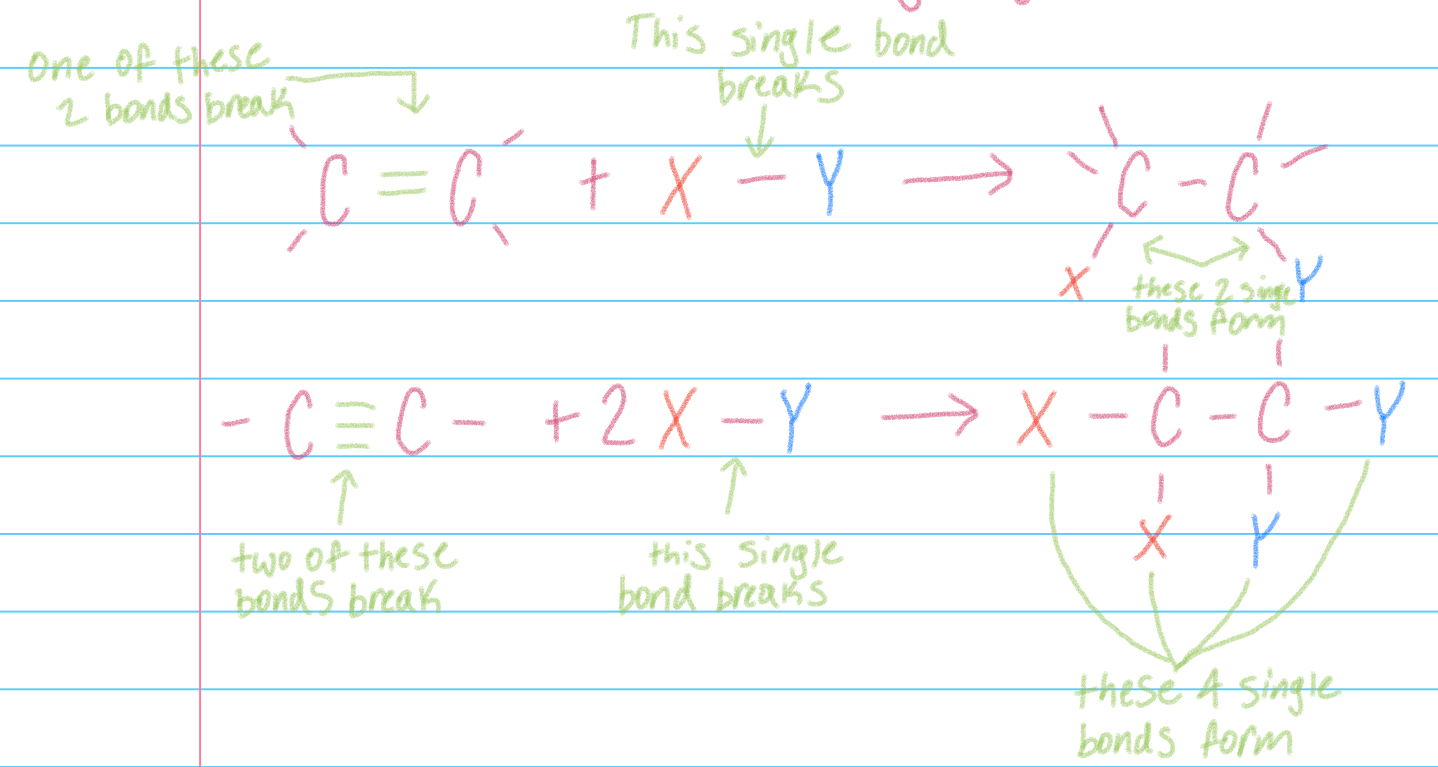 This single bond
breaks
one of these
2 bonds break
C = C + X - Y → C - C
X Y
these 2 single
bonds form
- C ≡ C - + 2 X - Y → X - C - C - Y
X Y
two of these
bonds break
this single
bond breaks
these 4 single
bonds form